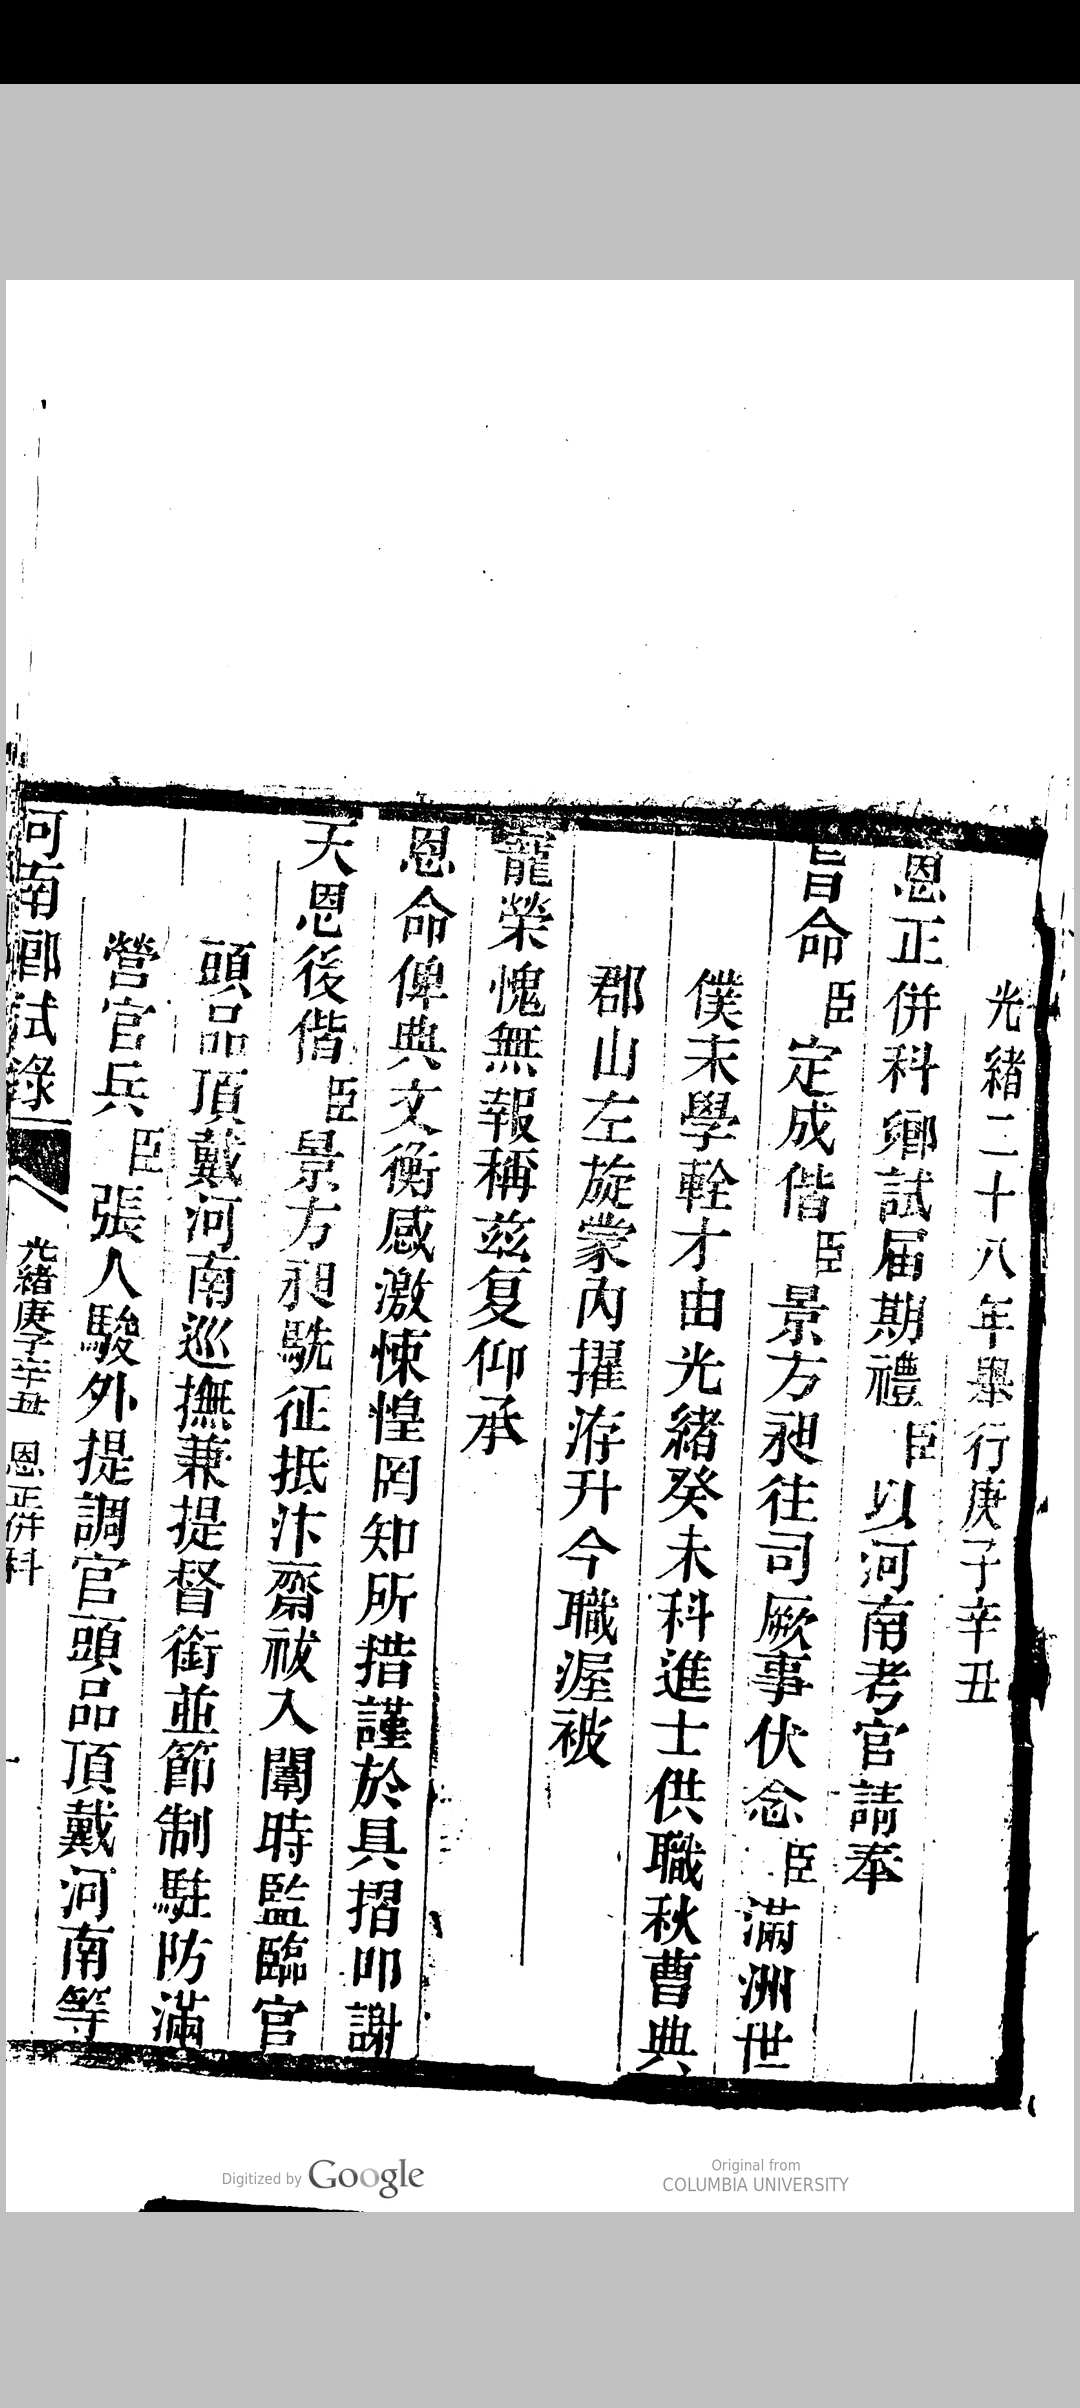 光緒二十八年舉行庚子辛丑
恩正併科鄉試届期禮臣以河南考官請奉
旨命臣定成偕臣景方昶往司厥事伏念臣滿洲世
僕末學輇才由光緒癸未科進士供職秋曹典
郡山左旋蒙內擢洊升今職渥被
寵榮愧無報稱茲复仰承
恩命俾典文衡感激悚惶罔知所措謹於具摺叩謝
天恩後偕臣景方昶駪征抵汴齋祓入闈時監臨官
頭品頂戴河南巡撫兼提督銜並節制駐防滿
營官兵臣張人駿外提調官頭品頂戴河南等
河南鄉試錄
光緒庚子辛丑 恩正併科
一
Digitized by Google
Original from
COLUMBIA UNIVERSITY